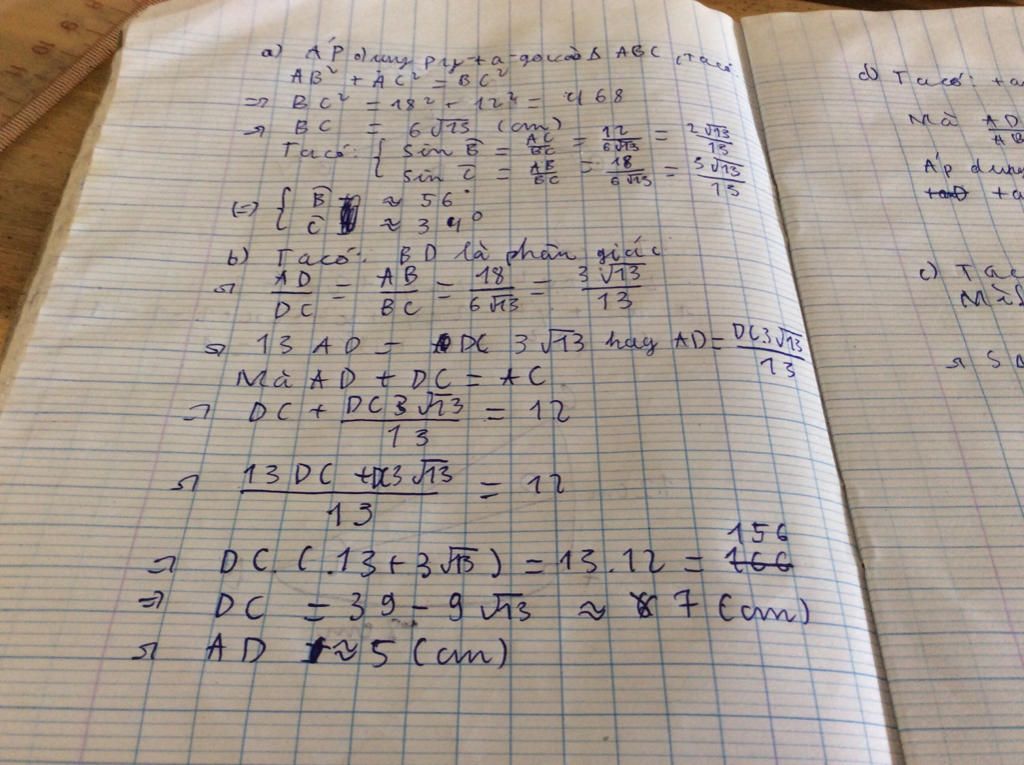 a) Áp dụng py-ta-go vào Δ ABC, ta có:
AB² + AC² = BC²
=> BC² = 18² + 12² = 468
=> BC = 6√13 (cm)
Ta có: { sin B = AC/BC = 12/6√13 = 2√13/13
sin C = AB/BC = 18/6√13 = 3√13/13
(=) { B ≈ 56°
C ≈ 34°
b) Ta có: BD là phân giác
=> AD/DC = AB/BC = 18/6√13 = 3√13/13
=> 13 AD = DC 3√13 hay AD = DC3√13/13
Mà AD + DC = AC
=> DC + DC3√13/13 = 12
=> 13DC + DC3√13/13 = 12
=> DC. (.13 + 3√13) = 13.12 = 156
=> DC = 39 - 9√13 ≈ 7 (cm)
=> AD ≈ 5 (cm)
d) Ta có: +a
Mà AD/AB
Áp dụng
+a
c) Ta c
Mà
=> S